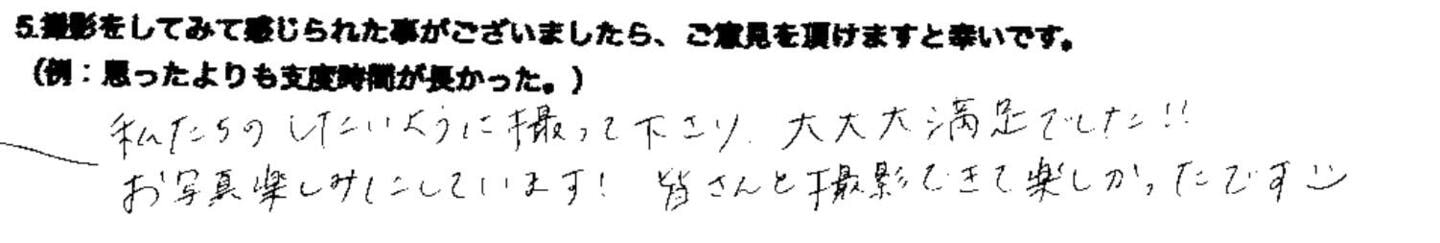 5.撮影をしてみて感じられた事がございましたら、ご意見を頂けますと幸いです。
（例：思ったよりも支度時間が長かった。）
私たちの したいように撮って下さり、大大大満足でした!!
お写真楽しみにしています! 皆さんと撮影できて楽しかったです